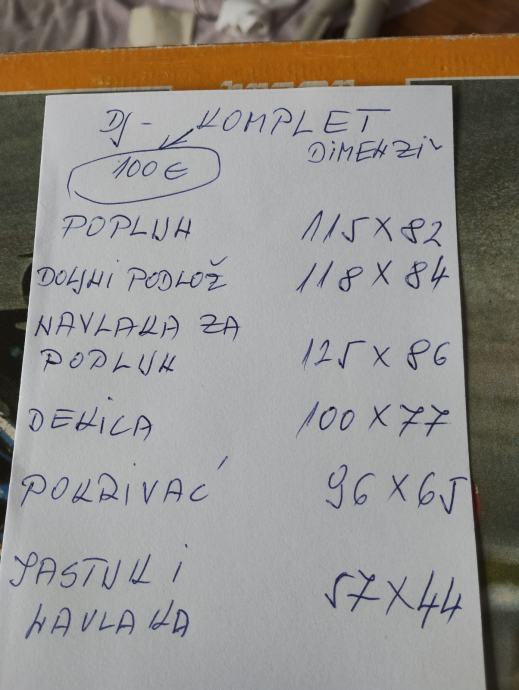 DJ - KOMPLET
100€
DIMENZI
POPLUN 115X82
DOLJNI PODLOŽ 118X84
NAVLAKA ZA
POPLUN 125X86
DEKICA 100X77
POKRIVAĆ 96X65
JASTUK I
NAVLAKA 57X44